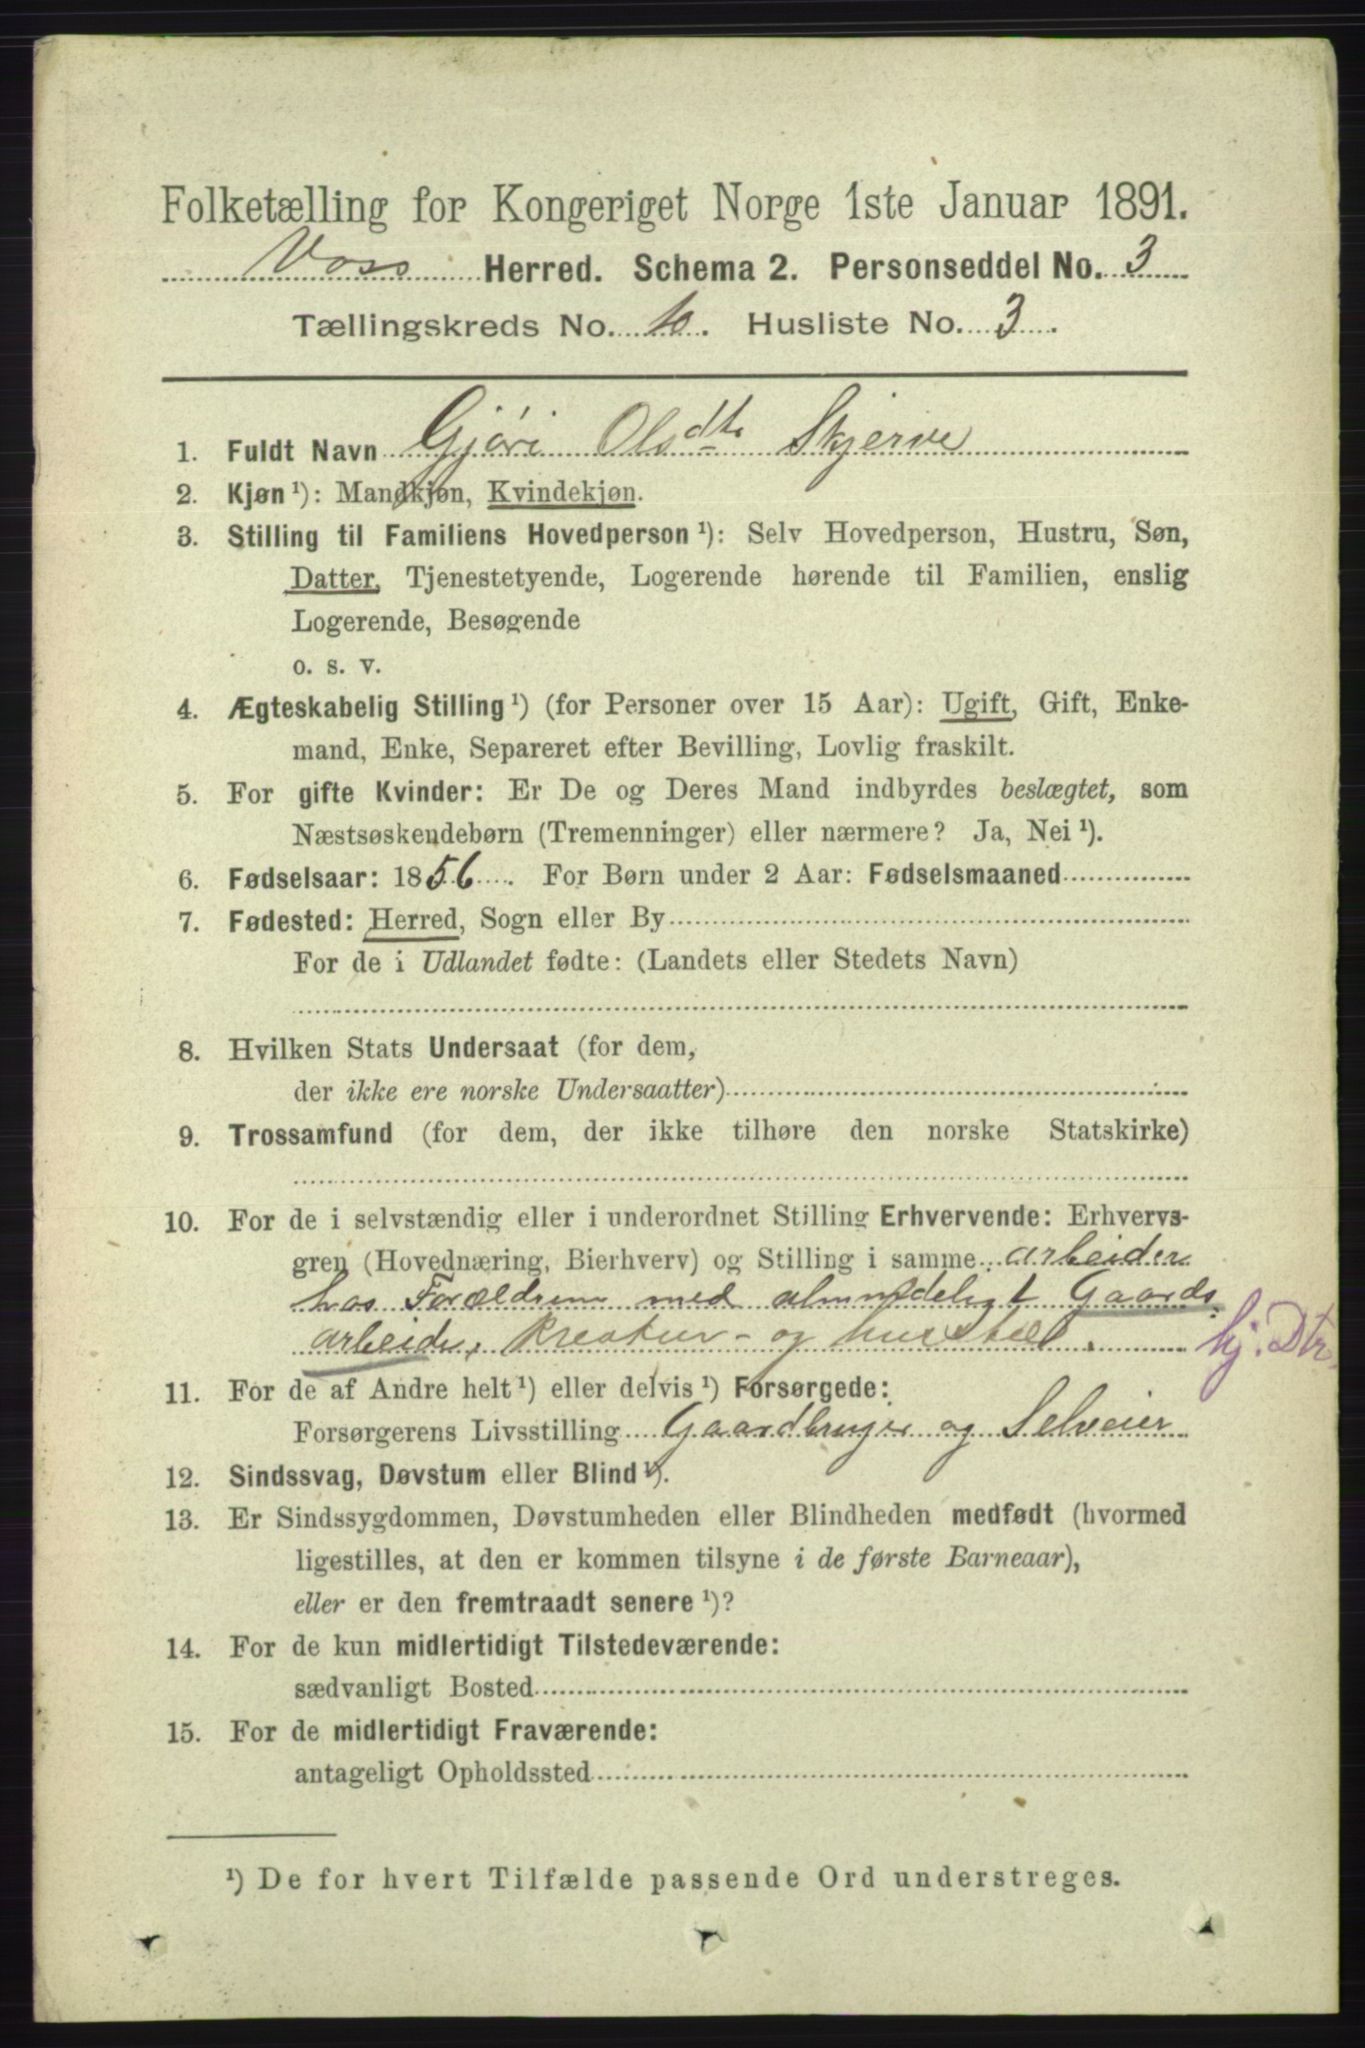 Folketælling for Kongeriget Norge 1ste Januar 1891.
Voss Herred. Schema 2. Personseddel No. 3
Tællingskreds No. 10. Husliste No. 3.
1. Fuldt Navn Gjøri Olsdtr Skjerve
2. Kjøn ¹): Mandkjøn, Kvindekjøn.
3. Stilling til Familiens Hovedperson ¹): Selv Hovedperson, Hustru, Søn,
Datter, Tjenestetyende, Logerende hørende til Familien, enslig
Logerende, Besøgende
o. s. v.
4. Ægteskabelig Stilling ¹) (for Personer over 15 Aar): Ugift, Gift, Enke-
mand, Enke, Separeret efter Bevilling, Lovlig fraskilt.
5. For gifte Kvinder: Er De og Deres Mand indbyrdes beslægtet, som
Næstsøskendebørn (Tremenninger) eller nærmere? Ja, Nei ¹).
6. Fødselsaar: 1856. For Børn under 2 Aar: Fødselsmaaned
7. Fødested: Herred, Sogn eller By
For de i Udlandet fødte: (Landets eller Stedets Navn)
8. Hvilken Stats Undersaat (for dem,
der ikke ere norske Undersaatter)
9. Trossamfund (for dem, der ikke tilhøre den norske Statskirke)
10. For de i selvstændig eller i underordnet Stilling Erhvervende: Erhvervs-
gren (Hovednæring, Bierhverv) og Stilling i samme arbeider
hos Forældrene med almindeligt Gaards
arbeide, kreatur- og husstel. hj. Dtr.
11. For de af Andre helt ¹) eller delvis ¹) Forsørgede:
Forsørgerens Livsstilling Gaardbruger og Selveier
12. Sindssvag, Døvstum eller Blind ¹).
13. Er Sindssygdommen, Døvstumheden eller Blindheden medfødt (hvormed
ligestilles, at den er kommen tilsyne i de første Barneaar),
eller er den fremtraadt senere ¹)?
14. For de kun midlertidigt Tilstedeværende:
sædvanligt Bosted
15. For de midlertidigt Fraværende:
antageligt Opholdssted
¹) De for hvert Tilfælde passende Ord understreges.